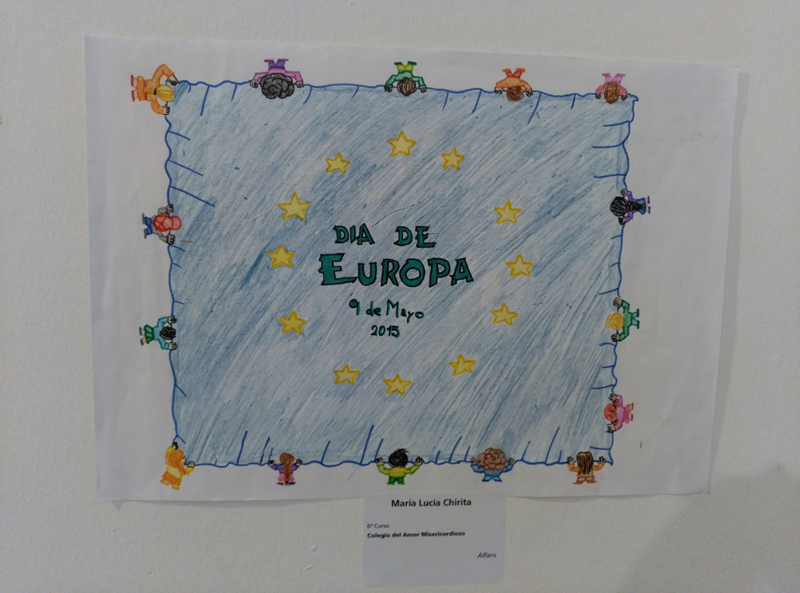 DIA DE
EUROPA
9 de Mayo
2015
María Lucía Chirita
6º Curso
Colegio del Amor Misericordioso
Alfaro